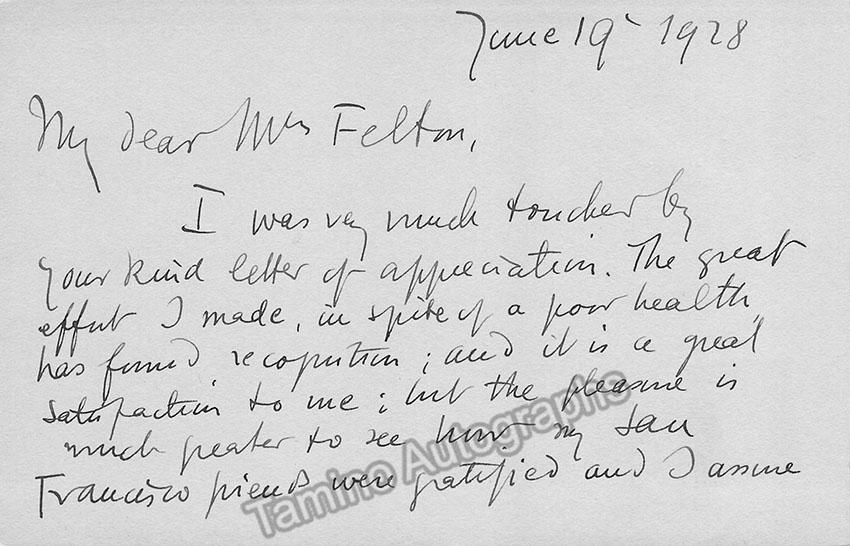 June 19 1928
My dear Mrs Felton,
I was very much touched by
your kind letter of appreciation. The great
effort I made, in spite of a poor health,
has found recognition; and it is a great
satisfaction to me; but the pleasure is
much greater to see how my San
Francisco friends were gratified and I assure
Tamino Autographs